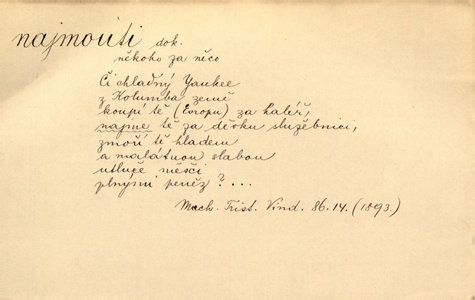 najmouti dok.
někoho za něco
Či chladný Yankee
z Kolumba země
koupí tě (Evropu) za haléř,
najme tě za děvku služebnici,
zmoří tě hladem
a malátnou slabou
utluče měšci
plnými peněz ? ...
Mach. Trist. Vind. 86.14. (1893.)